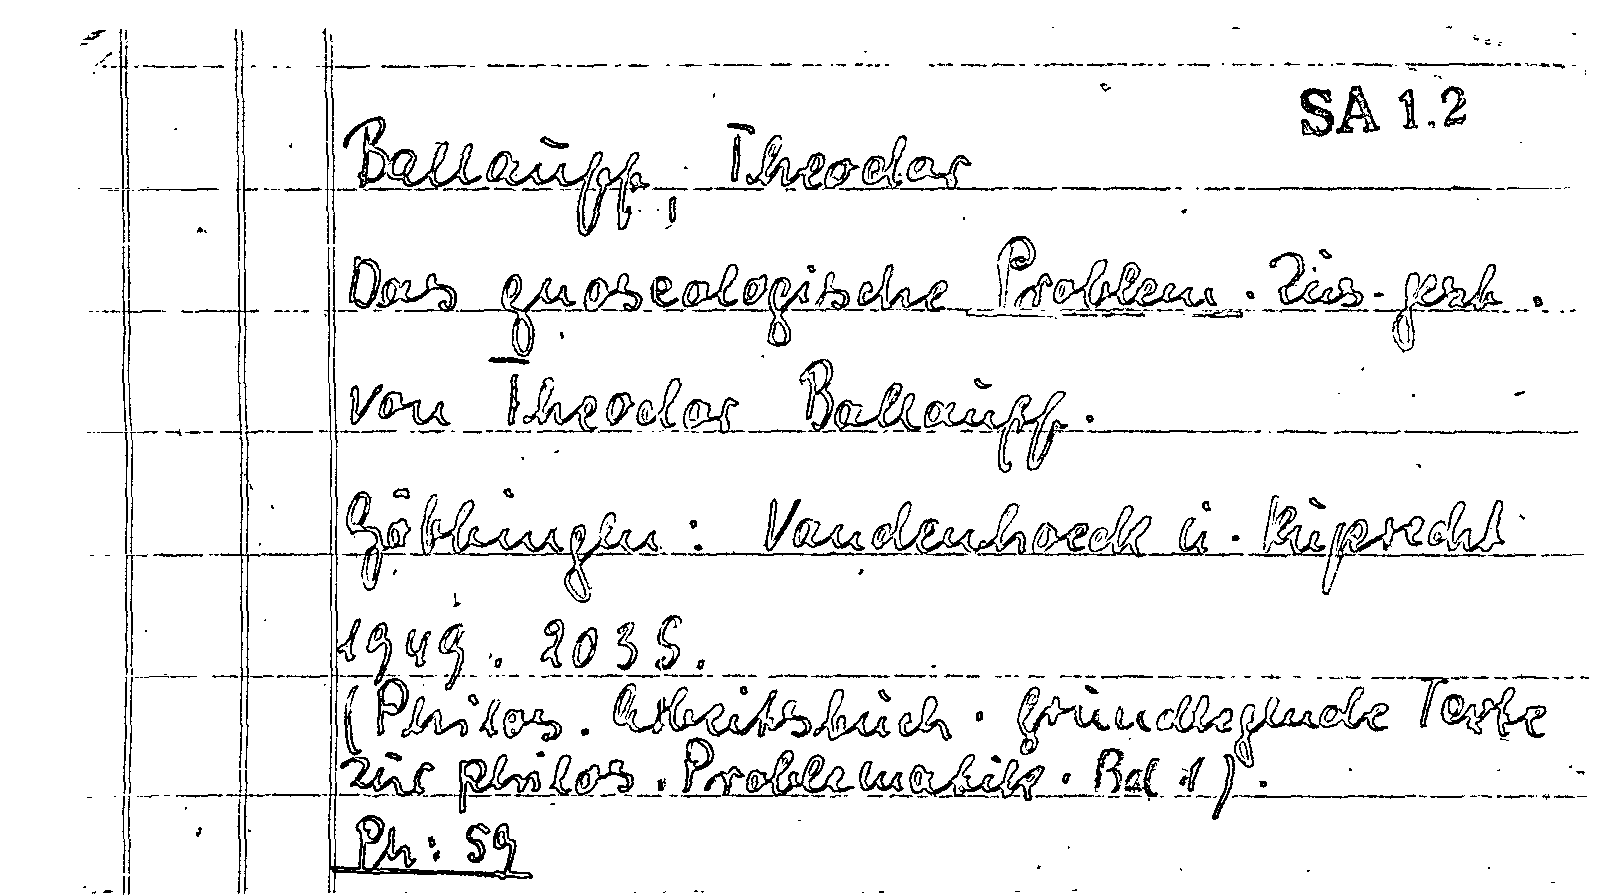 SA 1.2
Ballauff, Theodor
Das gnoseologische Problem. Zus.gest.
von Theodor Ballauff.
Göttingen: Vandenhoeck u. Ruprecht
1949. 203 S.
(Philos. Arbeitsbuch. Grundlegende Texte
zur philos. Problematik. Bd 1).
Ph: 59